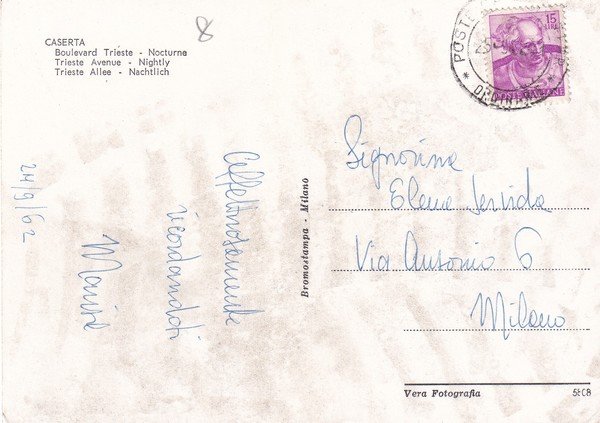 CASERTA
Boulevard Trieste - Nocturne
Trieste Avenue - Nightly
Trieste Allee - Nachtlich
8
15
LIRE
POSTE
POSTE ITALIANE
Signorina
Elena Servida
Via Antonio 6
Milano
Affettuosamente
ricordandoti
Maria
24/9/62
Bromostampa - Milano
Vera Fotografia